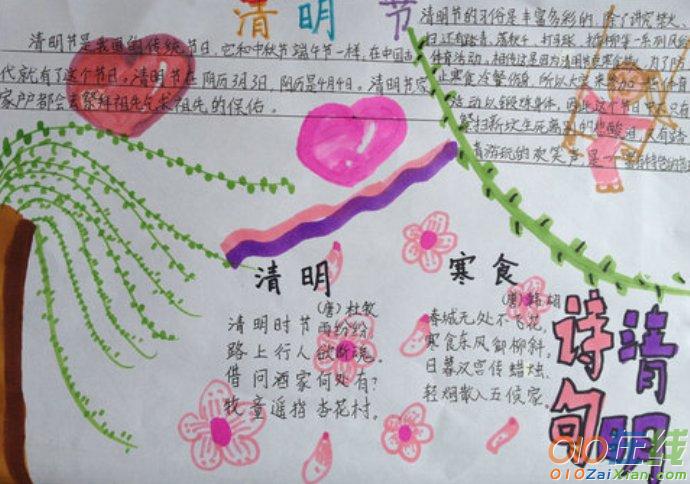 清明节
清明节是我国的传统节日,它和中秋节端午节一样,在中国古
代就有了这个节日。清明节在阴历3月3日,阳历是4月4日。清明节家
家户户都会去祭拜祖先乞求祖先的保佑。
清明节的习俗是丰富多彩的,除了讲究禁火、
扫
还有踏青、荡秋千、打马球、插柳等一系列风俗
体育活动。相传这是因为清明节要寒食禁火,为了防
止寒食冷餐伤身,所以大家来参加一些体育
活动以锻炼身体。因此这个节日中有
祭扫新坟生死离别的悲酸泪,又有踏
青游玩的欢笑声,是一
清明
(唐)杜牧
清明时节雨纷纷,
路上行人欲断魂。
借问酒家何处有?
牧童遥指杏花村。
寒食
(唐)韩翃
春城无处不飞花,
寒食东风御柳斜。
日暮汉宫传蜡烛,
轻烟散入五侯家。
清明
诗句
010在线
010ZaiXian.com